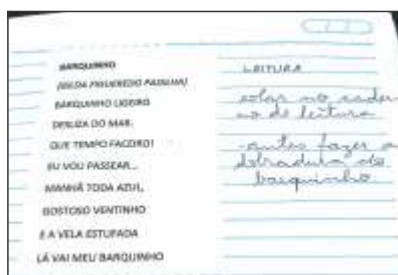 BARQUINHO
(GILDA FIGUEIREDO PADILHA)
BARQUINHO LIGEIRO
DESLIZA DO MAR.
QUE TEMPO FACEIRO!
EU VOU PASSEAR...
MANHÃ TODA AZUL,
GOSTOSO VENTINHO
E A VELA ESTUFADA
LÁ VAI MEU BARQUINHO
LEITURA
colar no cader
no de leitura
-antes fazer a
dobradura do
barquinho.